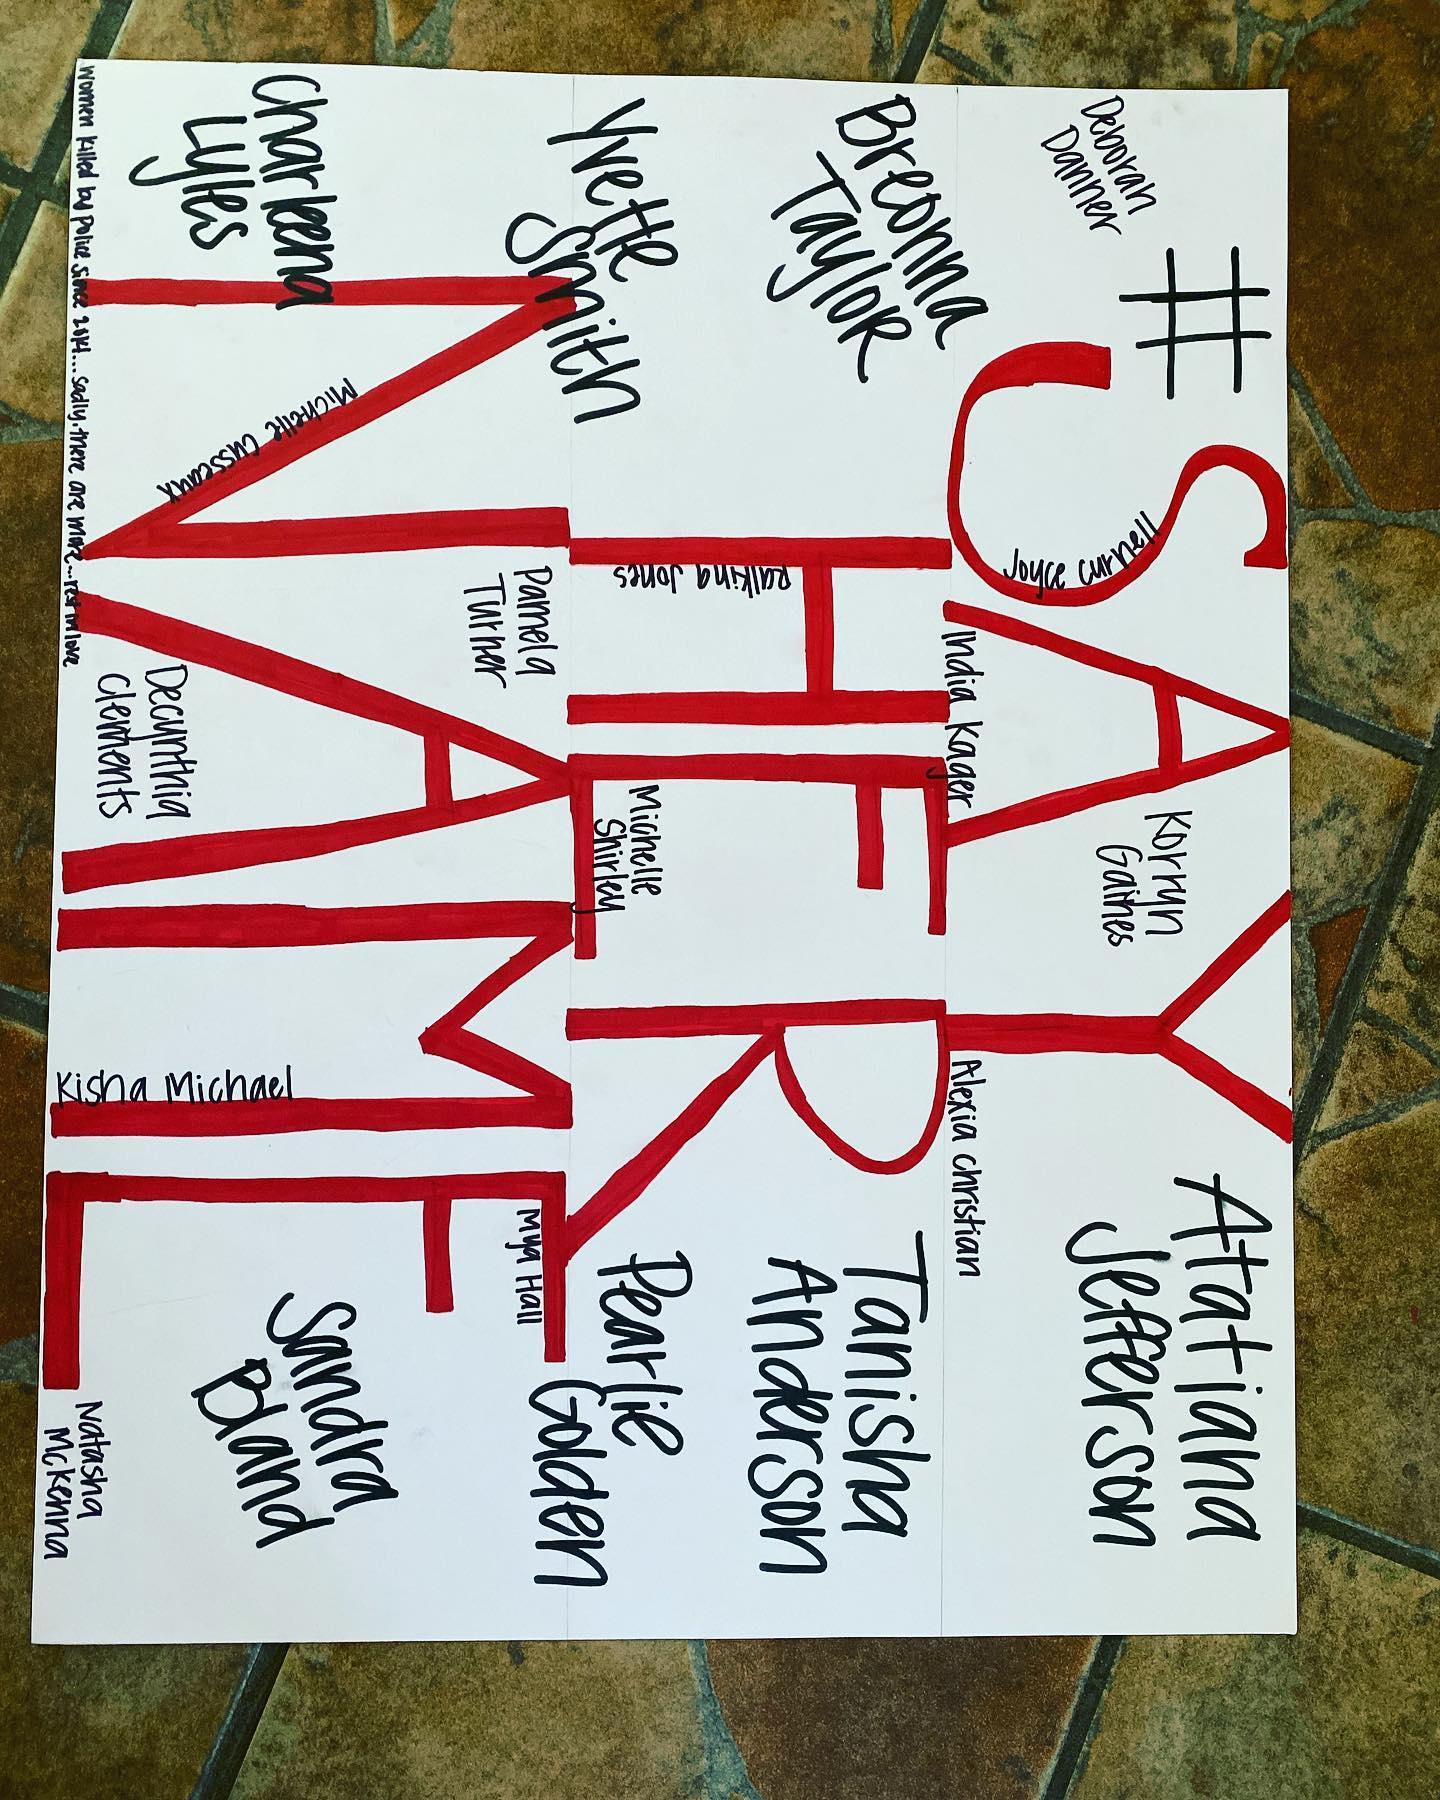 #SAY
HER
NAME
Deborah
Danner
Joyce Curnell
Korryn
Gaines
Atatiana
Jefferson
Breonna
Taylor
India Kager
Alexia Christian
Ralkina Jones
Tanisha
Anderson
Yvette
Smith
Michelle
Shirley
Pearlie
Golden
Pamela
Turner
Mya Hall
Charleena
Lyles
Michelle Cusseaux
Decynthia
Clements
Kisha Michael
Sandra
Bland
Natasha
McKenna
Women killed by police since 2014... sadly, there are more... rest in love